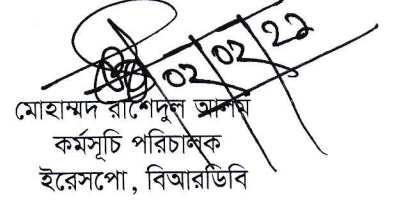 ০২ ০২ ২২
মোহাম্মদ রাশেদুল আলম
কর্মসূচি পরিচালক
ইরেসপো, বিআরডিবি